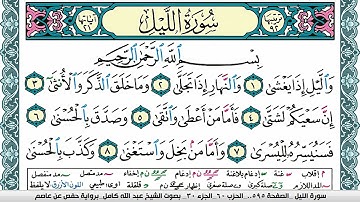 سُورَةُ اللَّيْلِ
بِسْمِ اللَّهِ الرَّحْمَٰنِ الرَّحِيمِ
وَاللَّيْلِ إِذَا يَغْشَىٰ ١ وَالنَّهَارِ إِذَا تَجَلَّىٰ ٢ وَمَا خَلَقَ الذَّكَرَ وَالْأُنثَىٰ ٣
إِنَّ سَعْيَكُمْ لَشَتَّىٰ ٤ فَأَمَّا مَنْ أَعْطَىٰ وَاتَّقَىٰ ٥ وَصَدَّقَ بِالْحُسْنَىٰ ٦
فَسَنُيَسِّرُهُ لِلْيُسْرَىٰ ٧ وَأَمَّا مَنْ بَخِلَ وَاسْتَغْنَىٰ ٨ وَكَذَّبَ بِالْحُسْنَىٰ
سورة الليل . الصفحة ٥٩٥ . الحزب ٦٠ . الجزء ٣٠ . بصوت الشيخ عبد الله كامل . برواية حفص عن عاصم